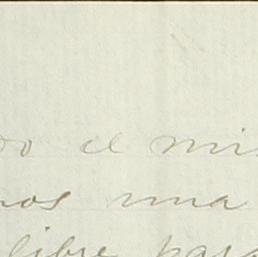 do el mis
nos una
libre para